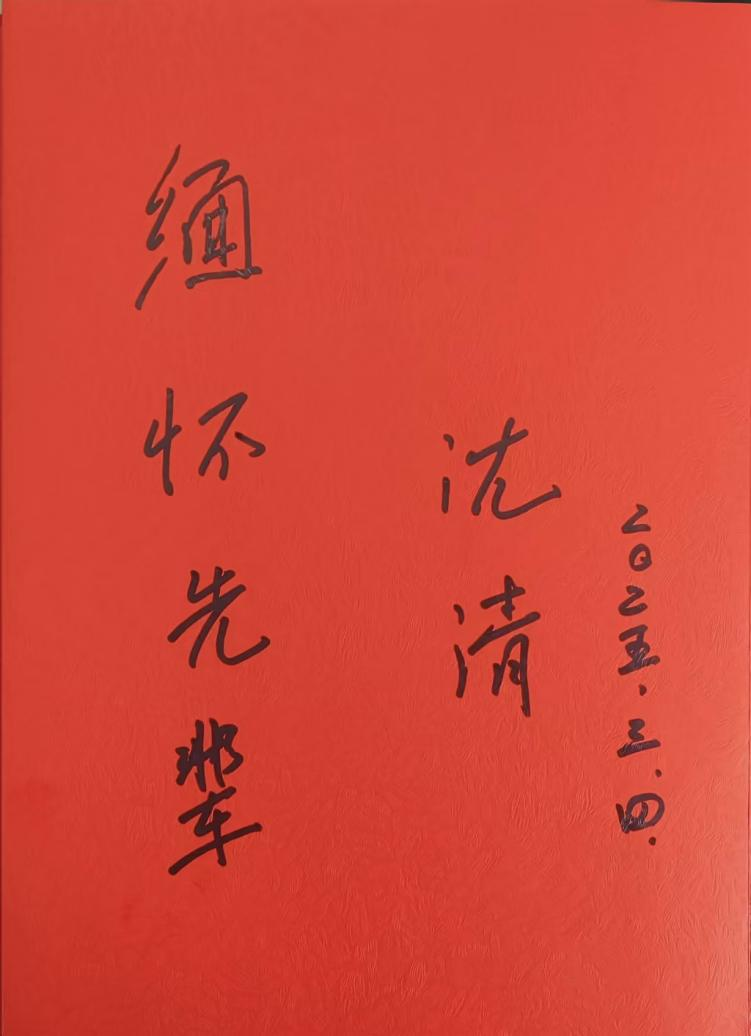 缅怀先辈
沈清
二〇二五.三.四.